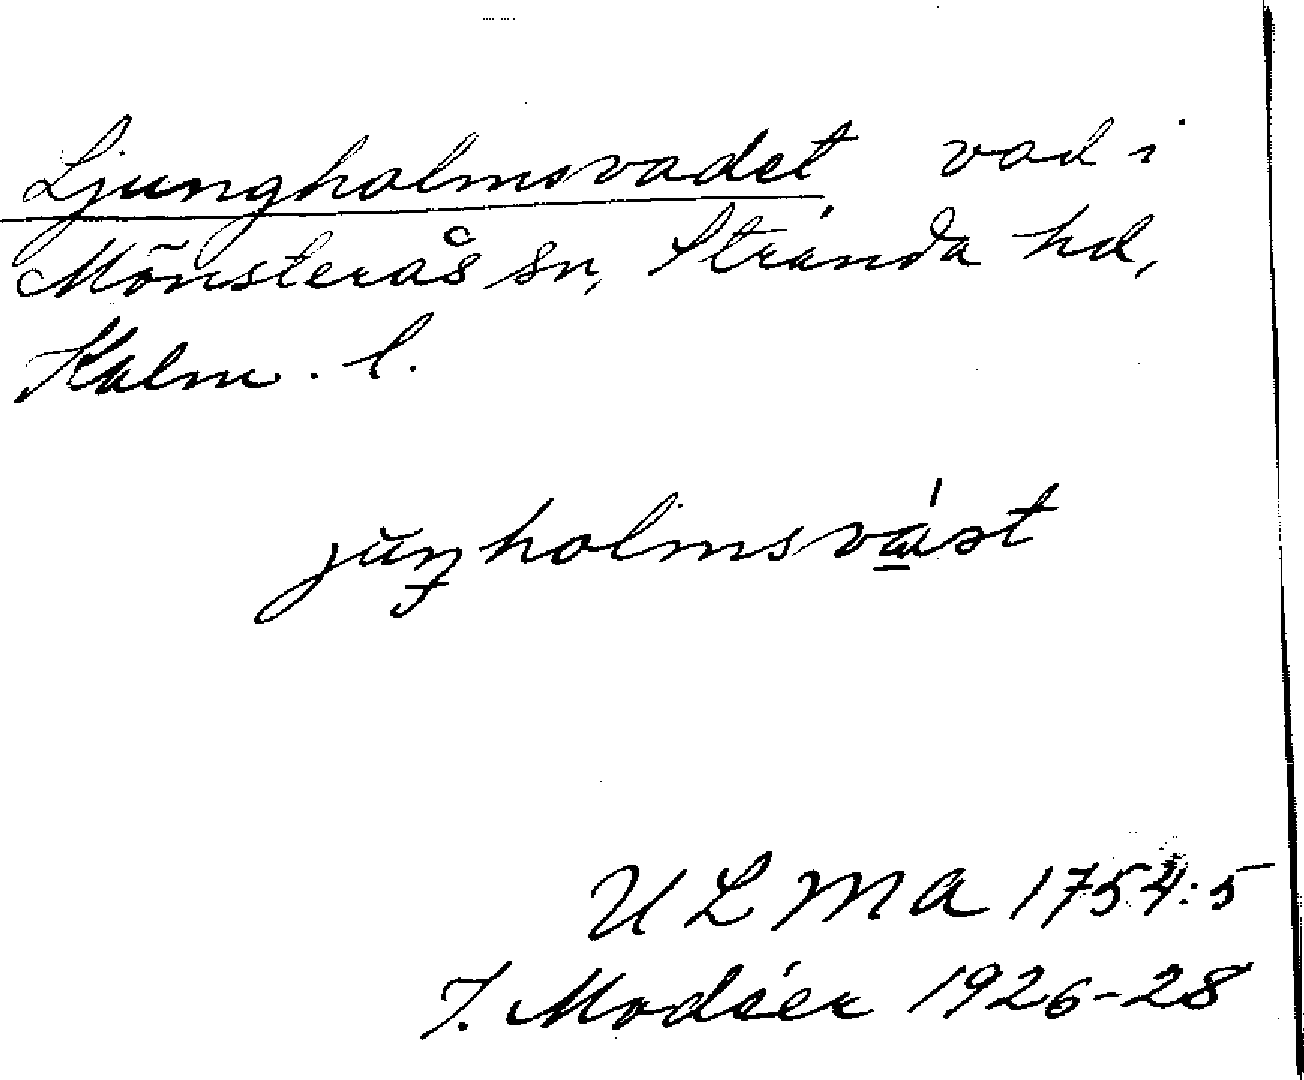 Ljungholmsvadet vad i
Mönsterås sn, Stranda hd,
Kalm. l.
juŋholmsvást
ULMA 1754:5
I. Modéer 1926-28